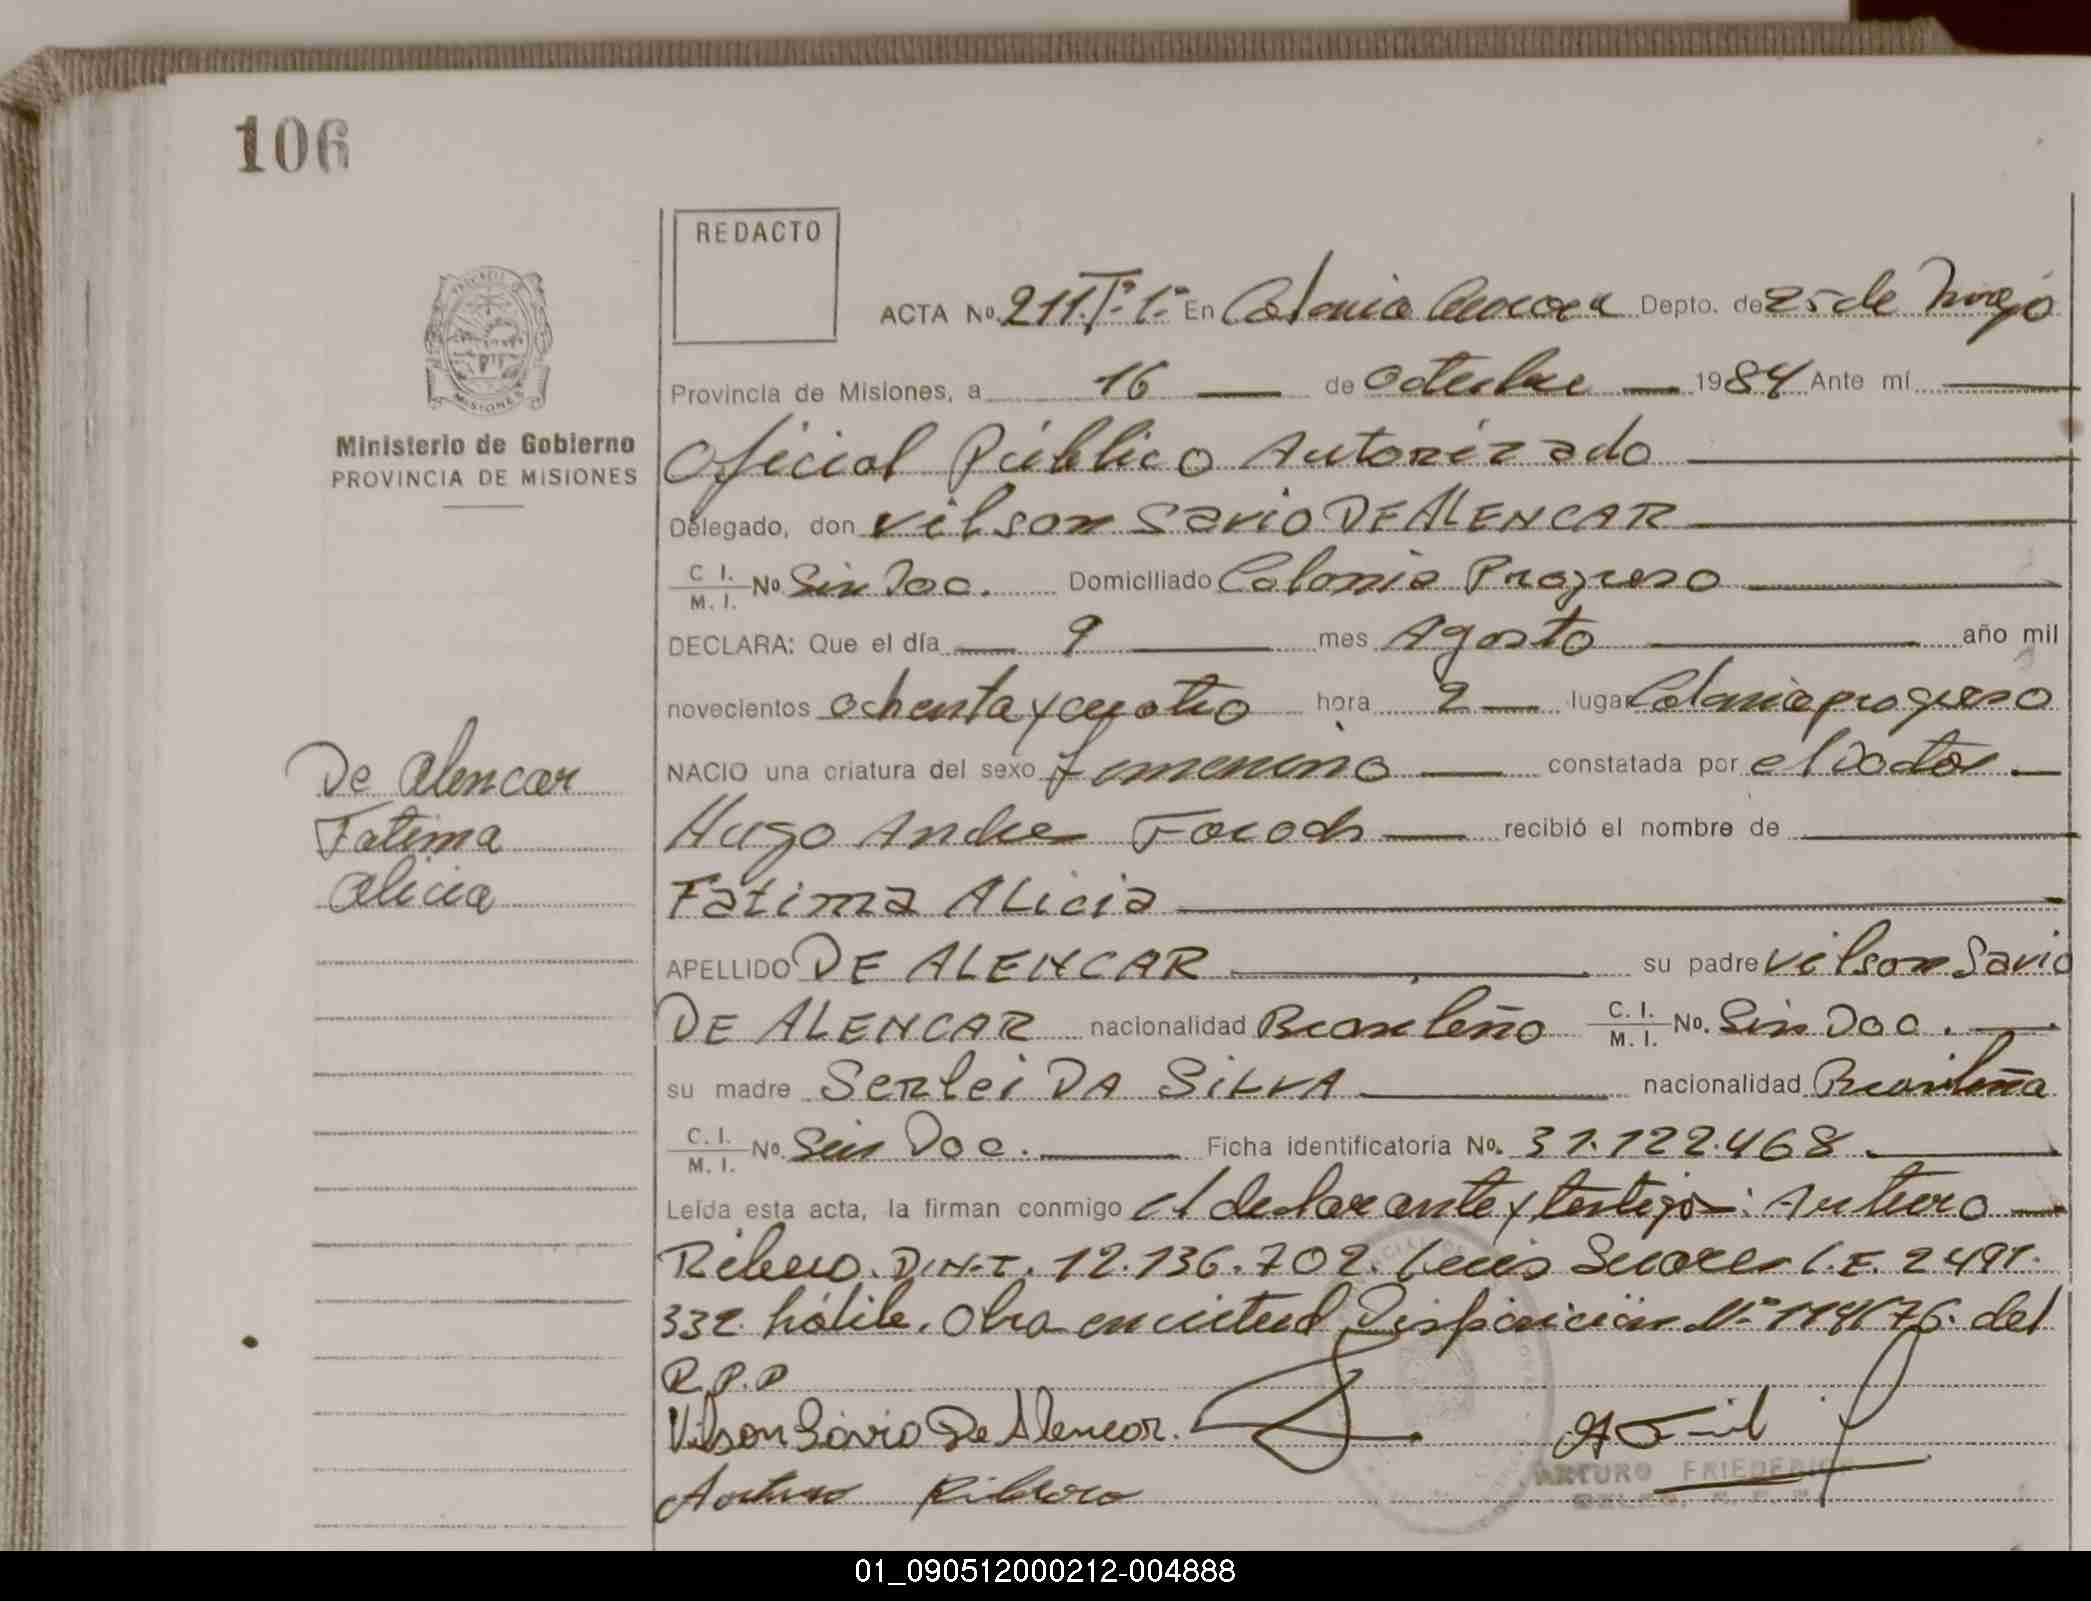 106
REDACTO
ACTA No. 211.Tº.1º. En Colonia Aurora Depto. de 25 de Mayo
Provincia de Misiones, a 16 de Octubre 1984 Ante mí
MISIONES
Ministerio de Gobierno
PROVINCIA DE MISIONES
Oficial Público Autorizado
Delegado, don Vilson Savio DE ALENCAR
C. I. M. I. No. Sin Doc. Domiciliado Colonia Progreso
DECLARA: Que el día 9 mes Agosto año mil
novecientos ochenta y cuatro hora 2 lugar Colonia progreso
NACIO una criatura del sexo femenino constatada por el Doctor
Hugo Andres recibió el nombre de
De Alencar
Fatima
Alicia
Fatima Alicia
APELLIDO DE ALENCAR su padre Vilson Savio
DE ALENCAR nacionalidad Brasileño C. I. M. I. No. Sin Doc.
su madre Serlei DA SILVA nacionalidad Brasileña
C. I. M. I. No. Sin Doc. Ficha identificatoria No. 31.122.468
Leída esta acta, la firman conmigo el declarante y testigos: Arturo
Ribero. D.N.I. 12.136.702. Luis Suarez L.E. 2491.
332 hábile. Obra en virtud Disposición Nº 114/76. del
R.P.P
Vilson Sávio De Alencar.
Arturo Ribero
ARTURO FRIEDERICH
01_090512000212-004888